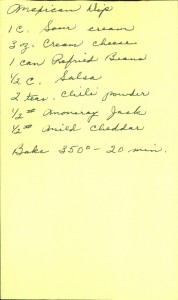 Mexican Dip
1 C. Sour cream
3 oz. Cream cheese
1 can Refried Beans
1/2 C. Salsa
2 teas. chili powder
1/2 # Monterey Jack
1/2 # mild Cheddar
Bake 350° - 20 min.